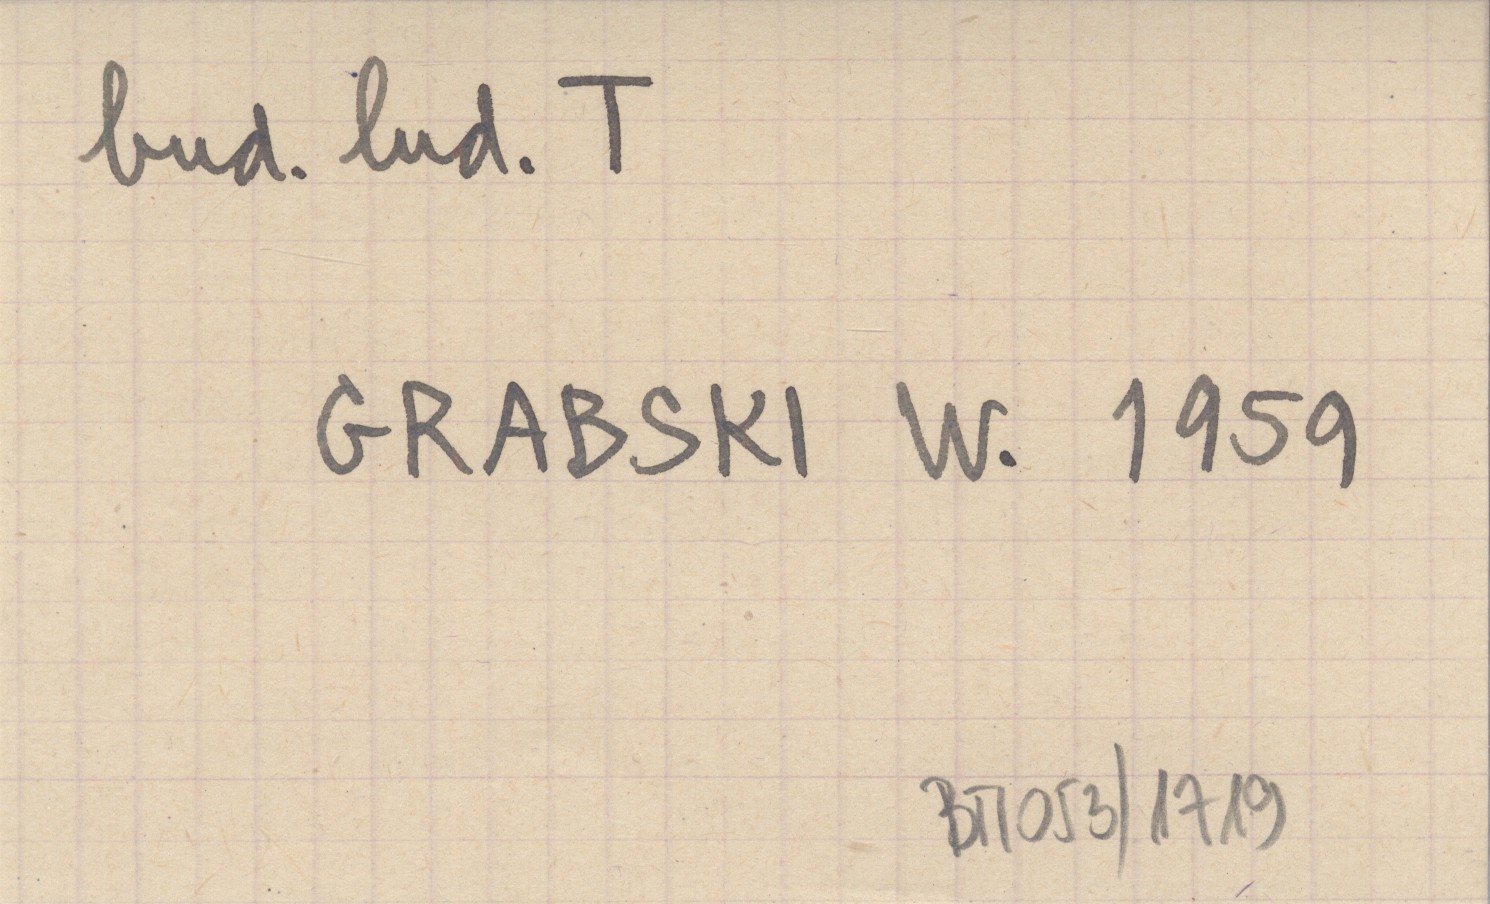 bud. lud. T
GRABSKI W. 1959
BTI053/1719